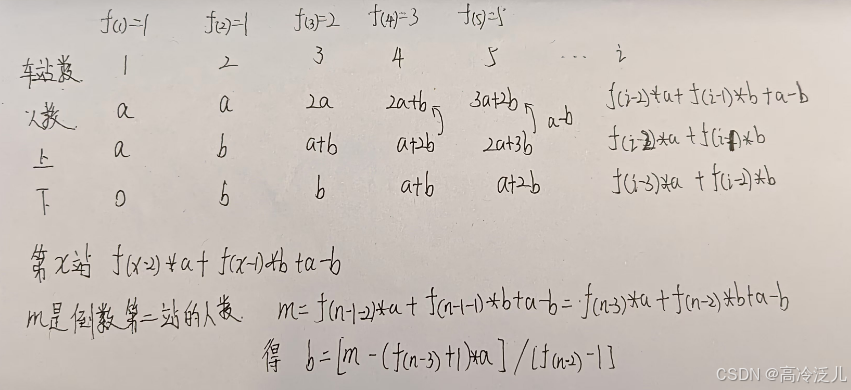 f(1)=1 f(2)=1 f(3)=2 f(4)=3 f(5)=5
车站数 1 2 3 4 5 ... i
人数 a a 2a 2a+b 3a+2b a-b f(i-2)*a+f(i-1)*b+a-b
上 a b a+b a+2b 2a+3b f(i-2)*a+f(i-1)*b
下 0 b b a+b a+2b f(i-3)*a+f(i-2)*b
第x站 f(x-2)*a+f(x-1)*b+a-b
m是倒数第二站的人数. m=f(n-1-2)*a+f(n-1-1)*b+a-b=f(n-3)*a+f(n-2)*b+a-b
得 b=[m-(f(n-3)+1)*a]/[f(n-2)-1]
CSDN @高冷泛儿